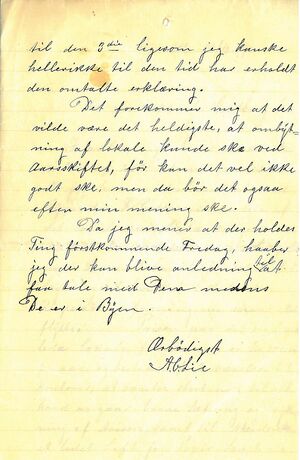 til den 3die ligesom jeg kanske
hellerikke til den tid har erholdt
den omtalte erklæring.
Det forekommer mig at det
vilde være det heldigste, at ombyt-
ning af lokale kunde ske ved
Aarsskiftet, för kan det vel ikke
godt ske, men da bör det ogsaa
efter min mening ske.
Da jeg mener at der holdes
Ting förstkommende Fredag, haaber
jeg der kan blive anledning til at
faa tale med Dem medens
De er i Byen.
Ærbödigst
A. Lie